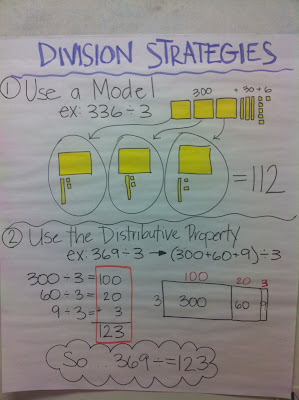 DIVISION STRATEGIES
① Use a Model
ex: 336 ÷ 3
300 + 30 + 6
= 112
② Use the Distributive Property
ex: 369 ÷ 3 → (300+60+9) ÷ 3
300 ÷ 3 = 100
60 ÷ 3 = 20
9 ÷ 3 = + 3
123
100 20 3
3 300 60 9
So... 369 ÷ = 123